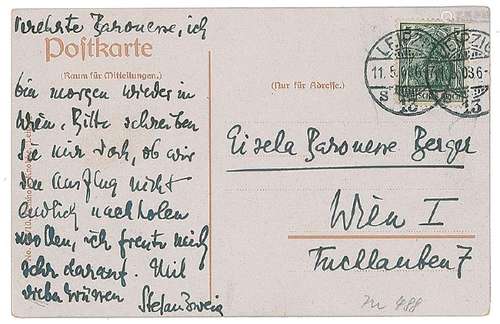 Verehrte Baronesse, ich
Postkarte
(Raum für Mitteilungen.)
bin morgen wieder in
Wien. Bitte schreiben
Sie mir doch, ob wir
den Ausflug nicht
endlich nachholen
wollen, ich freute mich
sehr darauf. Viel
liebe Grüsse
Stefan Zweig
(Nur für Adresse.)
LEIPZIG
11.5.
13
LEIPZIG
13
Gisela Baronesse Berger
Wien I
Tuchlauben 7
488